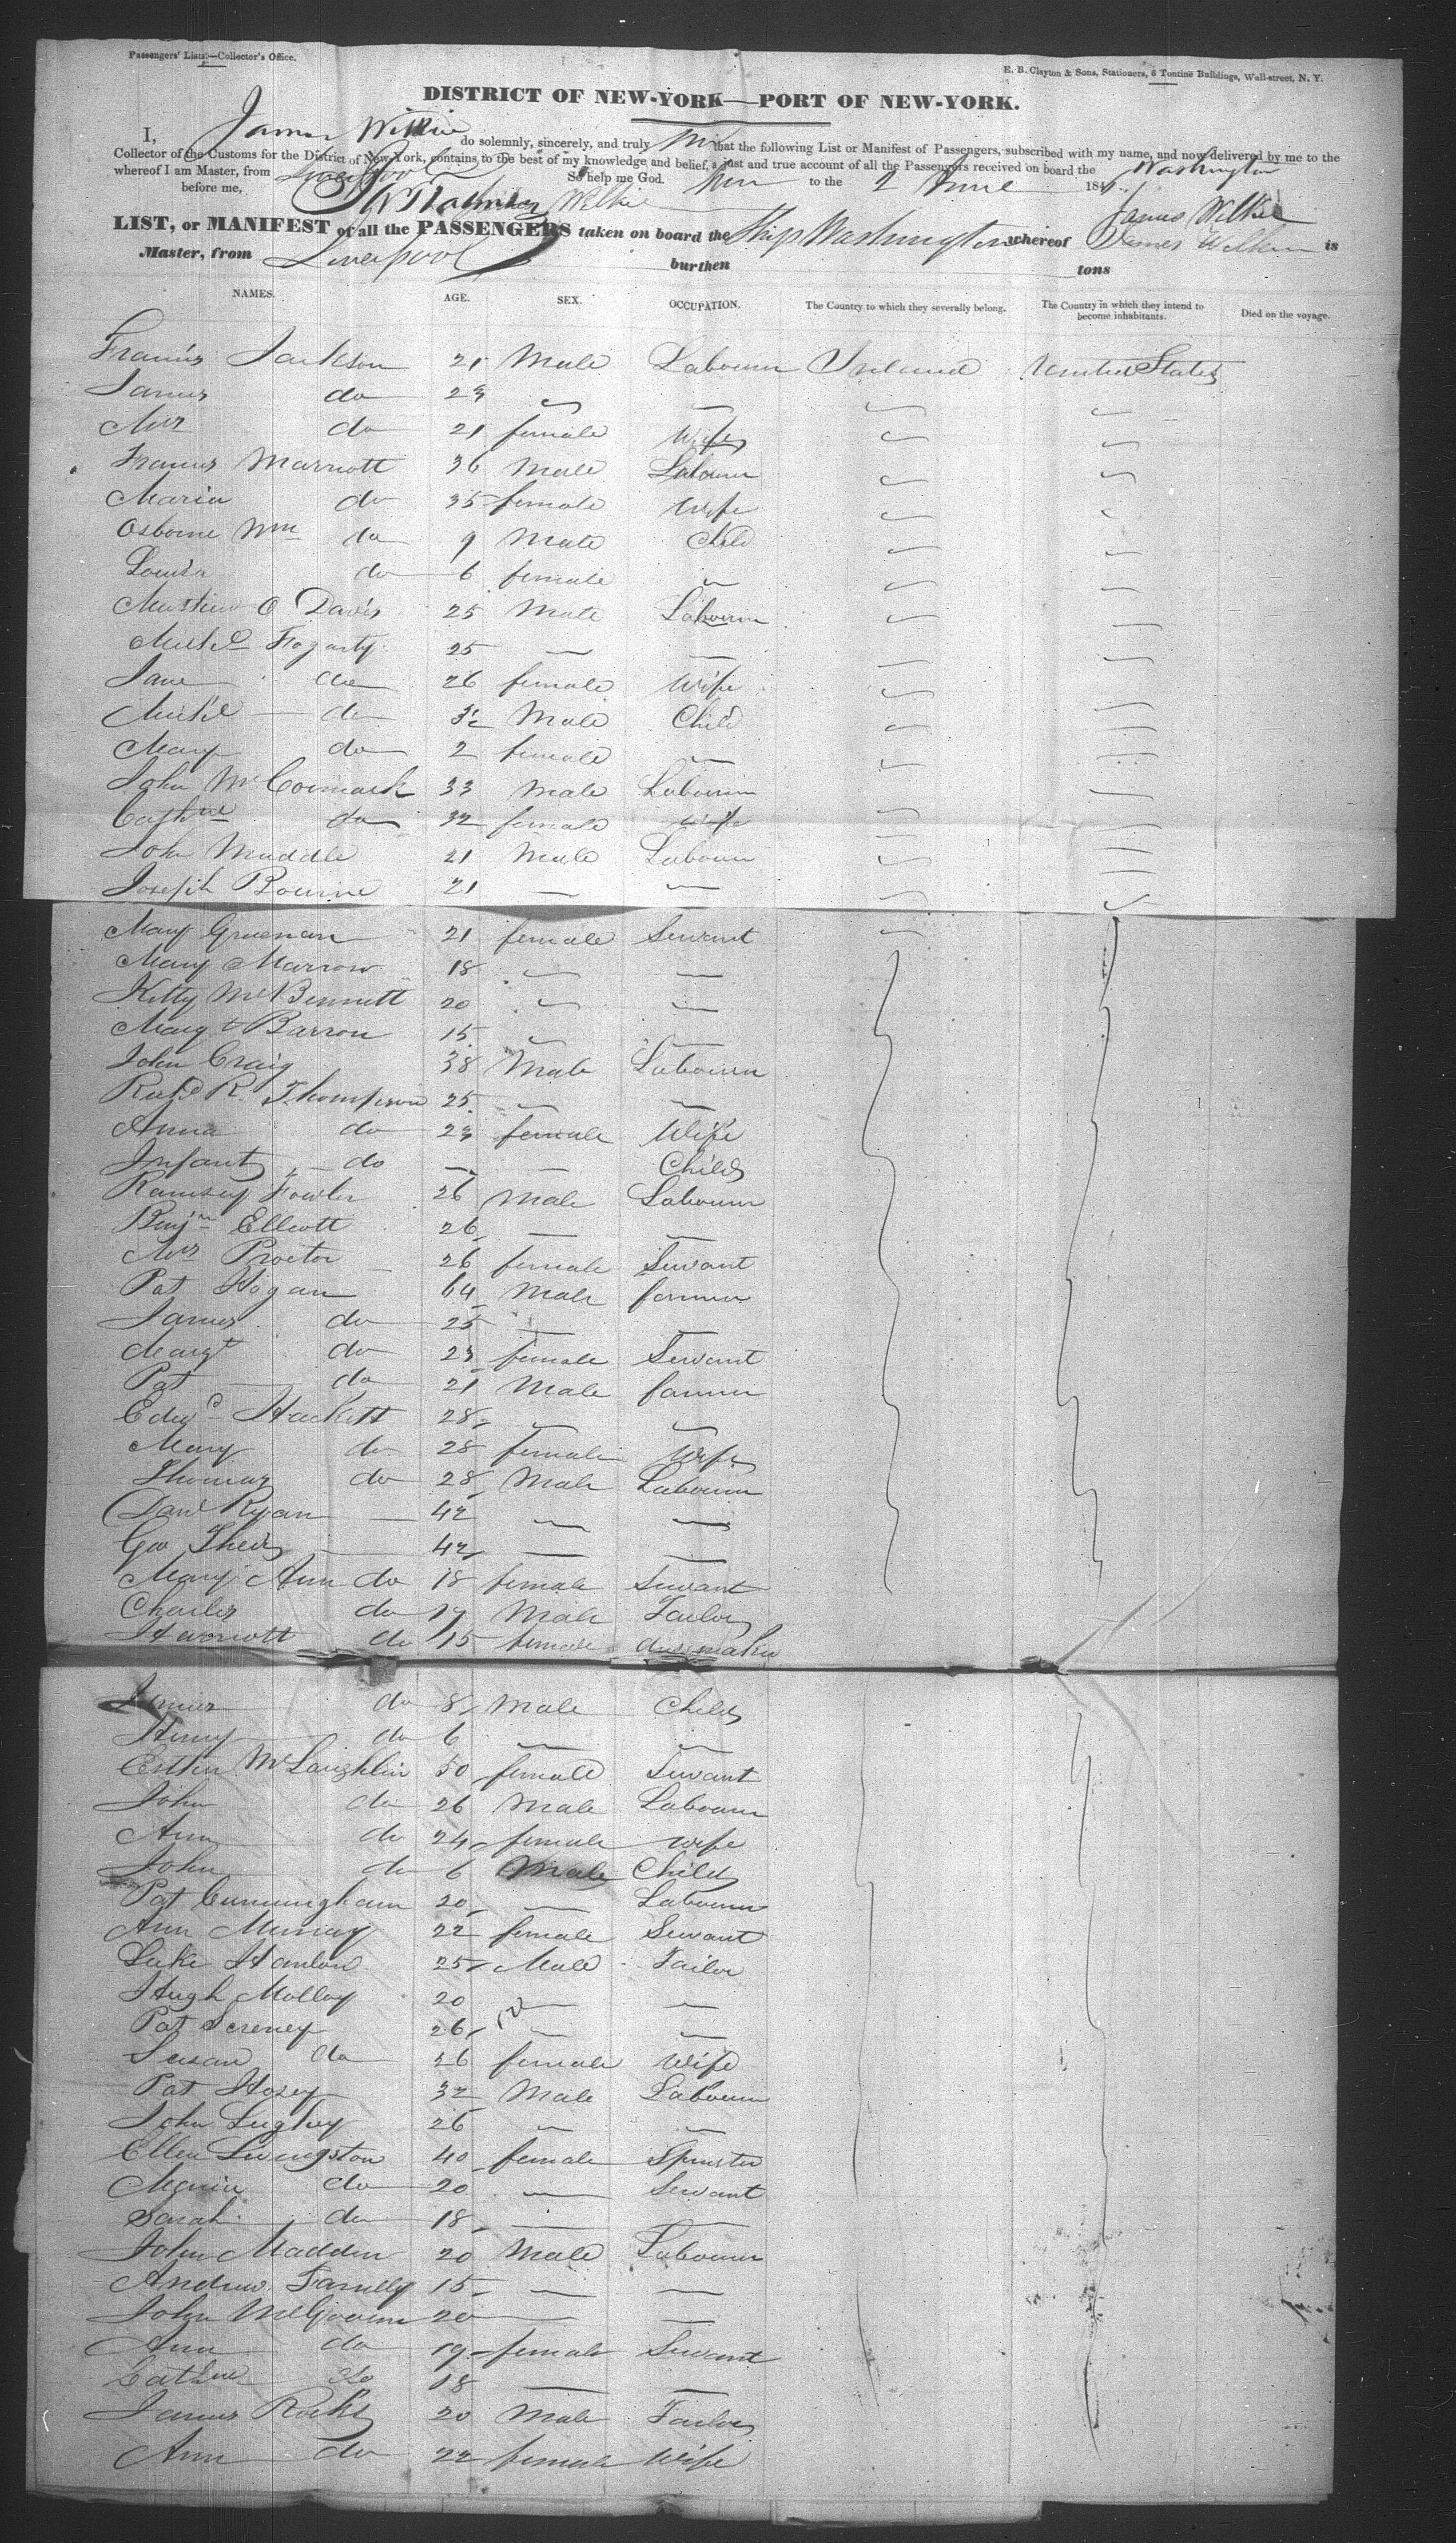 Passengers' Lists.—Collector's Office.
E. B. Clayton & Sons, Stationers, 6 Tontine Buildings, Wall-street, N. Y.
DISTRICT OF NEW-YORK—PORT OF NEW-YORK.
I, James Wilkie do solemnly, sincerely, and truly that the following List or Manifest of Passengers, subscribed with my name, and now delivered by me to the
Collector of the Customs for the District of New-York, contains, to the best of my knowledge and belief, a just and true account of all the Passengers received on board the Washington
whereof I am Master, from Liverpool So help me God.
before me, to the 2 June 184
James Wilkie
LIST, or MANIFEST of all the PASSENGERS taken on board the Ship Washington whereof James Wilkie is
Master, from Liverpool burthen tons
NAMES. AGE. SEX. OCCUPATION. The Country to which they severally belong. The Country in which they intend to become inhabitants. Died on the voyage.
Francis Jackson 21 Male Labourer Ireland United States
James do 23
Mrs do 21 female Wife
Francis Marriott 36 Male Labourer
Maria do 35 female Wife
Osborne Wm do 9 Male Child
Louisa do 6 female
O Davis 25 Male Labourer
Michl Fogarty 25
Jane do 26 female Wife
Michl do Male Child
Mary do 2 female
John McCormack 33 Male Labourer
Cathne do 32 female Wife
John Muddle 21 Male Labourer
Joseph Bourne 21
Mary 21 female Servant
Mary Marrow 18
Kitty McBennett 20
Margt Barron 15
John Craig 38 Male Labourer
Richd R. Thompson 25
Anna do 23 female Wife
Infant do Child
Ramsey Fowler 26 Male Labourer
Benjn Ellcott 26
Mrs Proctor 26 female Servant
Pat Hogan 64 Male farmer
James do 25
Margt do 23 female Servant
Pat do 21 Male farmer
Edwd Hackett 28
Mary do 28 female Wife
Thomas do 28 Male Labourer
Danl Ryan 42
Geo 42
Mary Ann do 18 female Servant
Charles do 17 Male Tailor
Harriott do 15 female dressmaker
James do 8 Male Child
Henry do 6
Esther McLaughlin 50 female Servant
John do 26 Male Labourer
Ann do 24 female Wife
John do 6 Male Child
Pat Cunningham 20 Labourer
Ann Murray 22 female Servant
Luke Hanlon 25 Male Tailor
Hugh Molloy 20
Pat 26
Susan do 26 female Wife
Pat Hosey 32 Male Labourer
John 26
Ellen Livingston 40 female Spinster
Maria do 20 Servant
Sarah do 18
John Madden 20 Male Labourer
Andrew Farrelly 15
John McGovern 20
Ann do 19 female Servant
Cathne do 18
James Rocks 20 Male Tailor
Ann do 22 female Wife